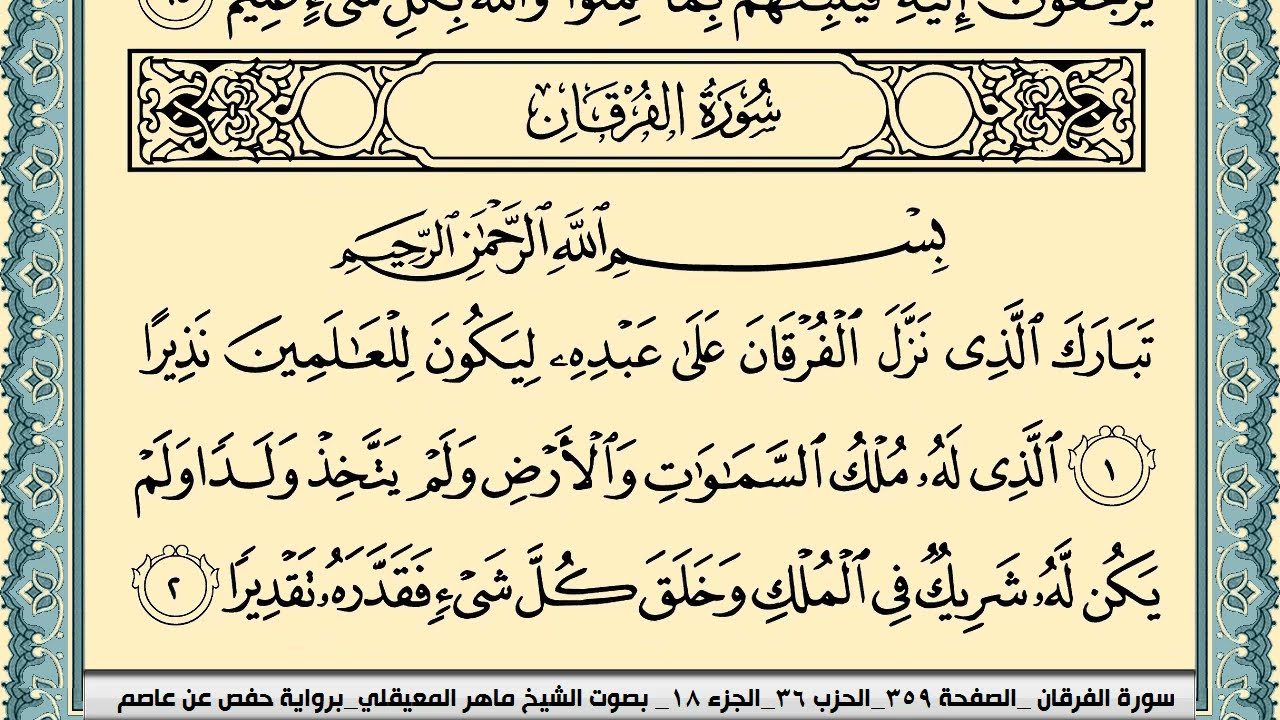 يُرْجَعُونَ إِلَيْهِ فَيُنَبِّئُهُم بِمَا عَمِلُوا۟ وَٱللَّهُ بِكُلِّ شَىْءٍ عَلِيمٌ
سُورَةُ الفُرْقَانِ
بِسْمِ ٱللَّهِ ٱلرَّحْمَٰنِ ٱلرَّحِيمِ
تَبَارَكَ ٱلَّذِى نَزَّلَ ٱلْفُرْقَانَ عَلَىٰ عَبْدِهِۦ لِيَكُونَ لِلْعَٰلَمِينَ نَذِيرًا
١ ٱلَّذِى لَهُۥ مُلْكُ ٱلسَّمَٰوَٰتِ وَٱلْأَرْضِ وَلَمْ يَتَّخِذْ وَلَدًا وَلَمْ
يَكُن لَّهُۥ شَرِيكٌ فِى ٱلْمُلْكِ وَخَلَقَ كُلَّ شَىْءٍ فَقَدَّرَهُۥ تَقْدِيرًا ٢
سورة الفرقان _الصفحة ٣٥٩_الحزب ٣٦_الجزء ١٨_ بصوت الشيخ ماهر المعيقلي_برواية حفص عن عاصم